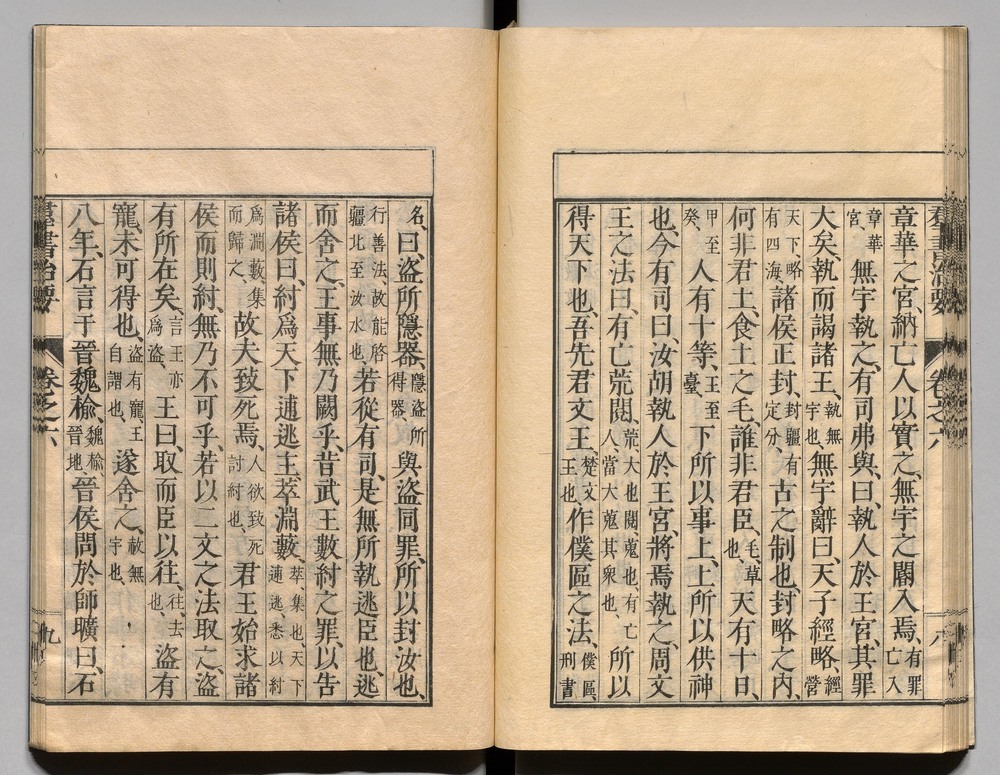 羣書治要 卷之六 八
章華之宮、納亡人以實之、無宇之閽入焉、有罪亡入
章華宮、無宇執之、有司弗與、曰、執人於王宮、其罪
大矣、執而謁諸王、執無宇也、無宇辭曰、天子經略、經營
天下、略有四海、諸侯正封、封疆有定分、古之制也、封略之內、
何非君土、食土之毛、誰非君臣、毛、草也、天有十日、
甲至癸、人有十等、王至臺、下所以事上、上所以供神
也、今有司曰、汝胡執人於王宮、將焉執之、周文
王之法曰、有亡荒閱、荒、大也、閱、蒐也、有亡人、當大蒐其衆也、所以
得天下也、吾先君文王、楚文王也、作僕區之法、僕區、刑書
名、曰、盜所隱器、隱盜所得器、與盜同罪、所以封汝也、
行善法、故能啓疆北至汝水也、若從有司、是無所執逃臣也、逃
而舍之、王事無乃闕乎、昔武王數紂之罪、以告
諸侯曰、紂爲天下逋逃主、萃淵藪、萃集也、天下逋逃悉以紂
爲淵藪集而歸之、故夫致死焉、人欲致死討紂也、君王始求諸
侯而則紂、無乃不可乎、若以二文之法取之、盜
有所在矣、言王亦爲盜、王曰、取而臣以往、往、去也、盜有
寵、未可得也、盜有寵、王自謂也、遂舍之、赦無宇也、
八年、石言于晉魏榆、魏榆、晉地、晉侯問於師曠曰、石
羣書治要 卷之六 九